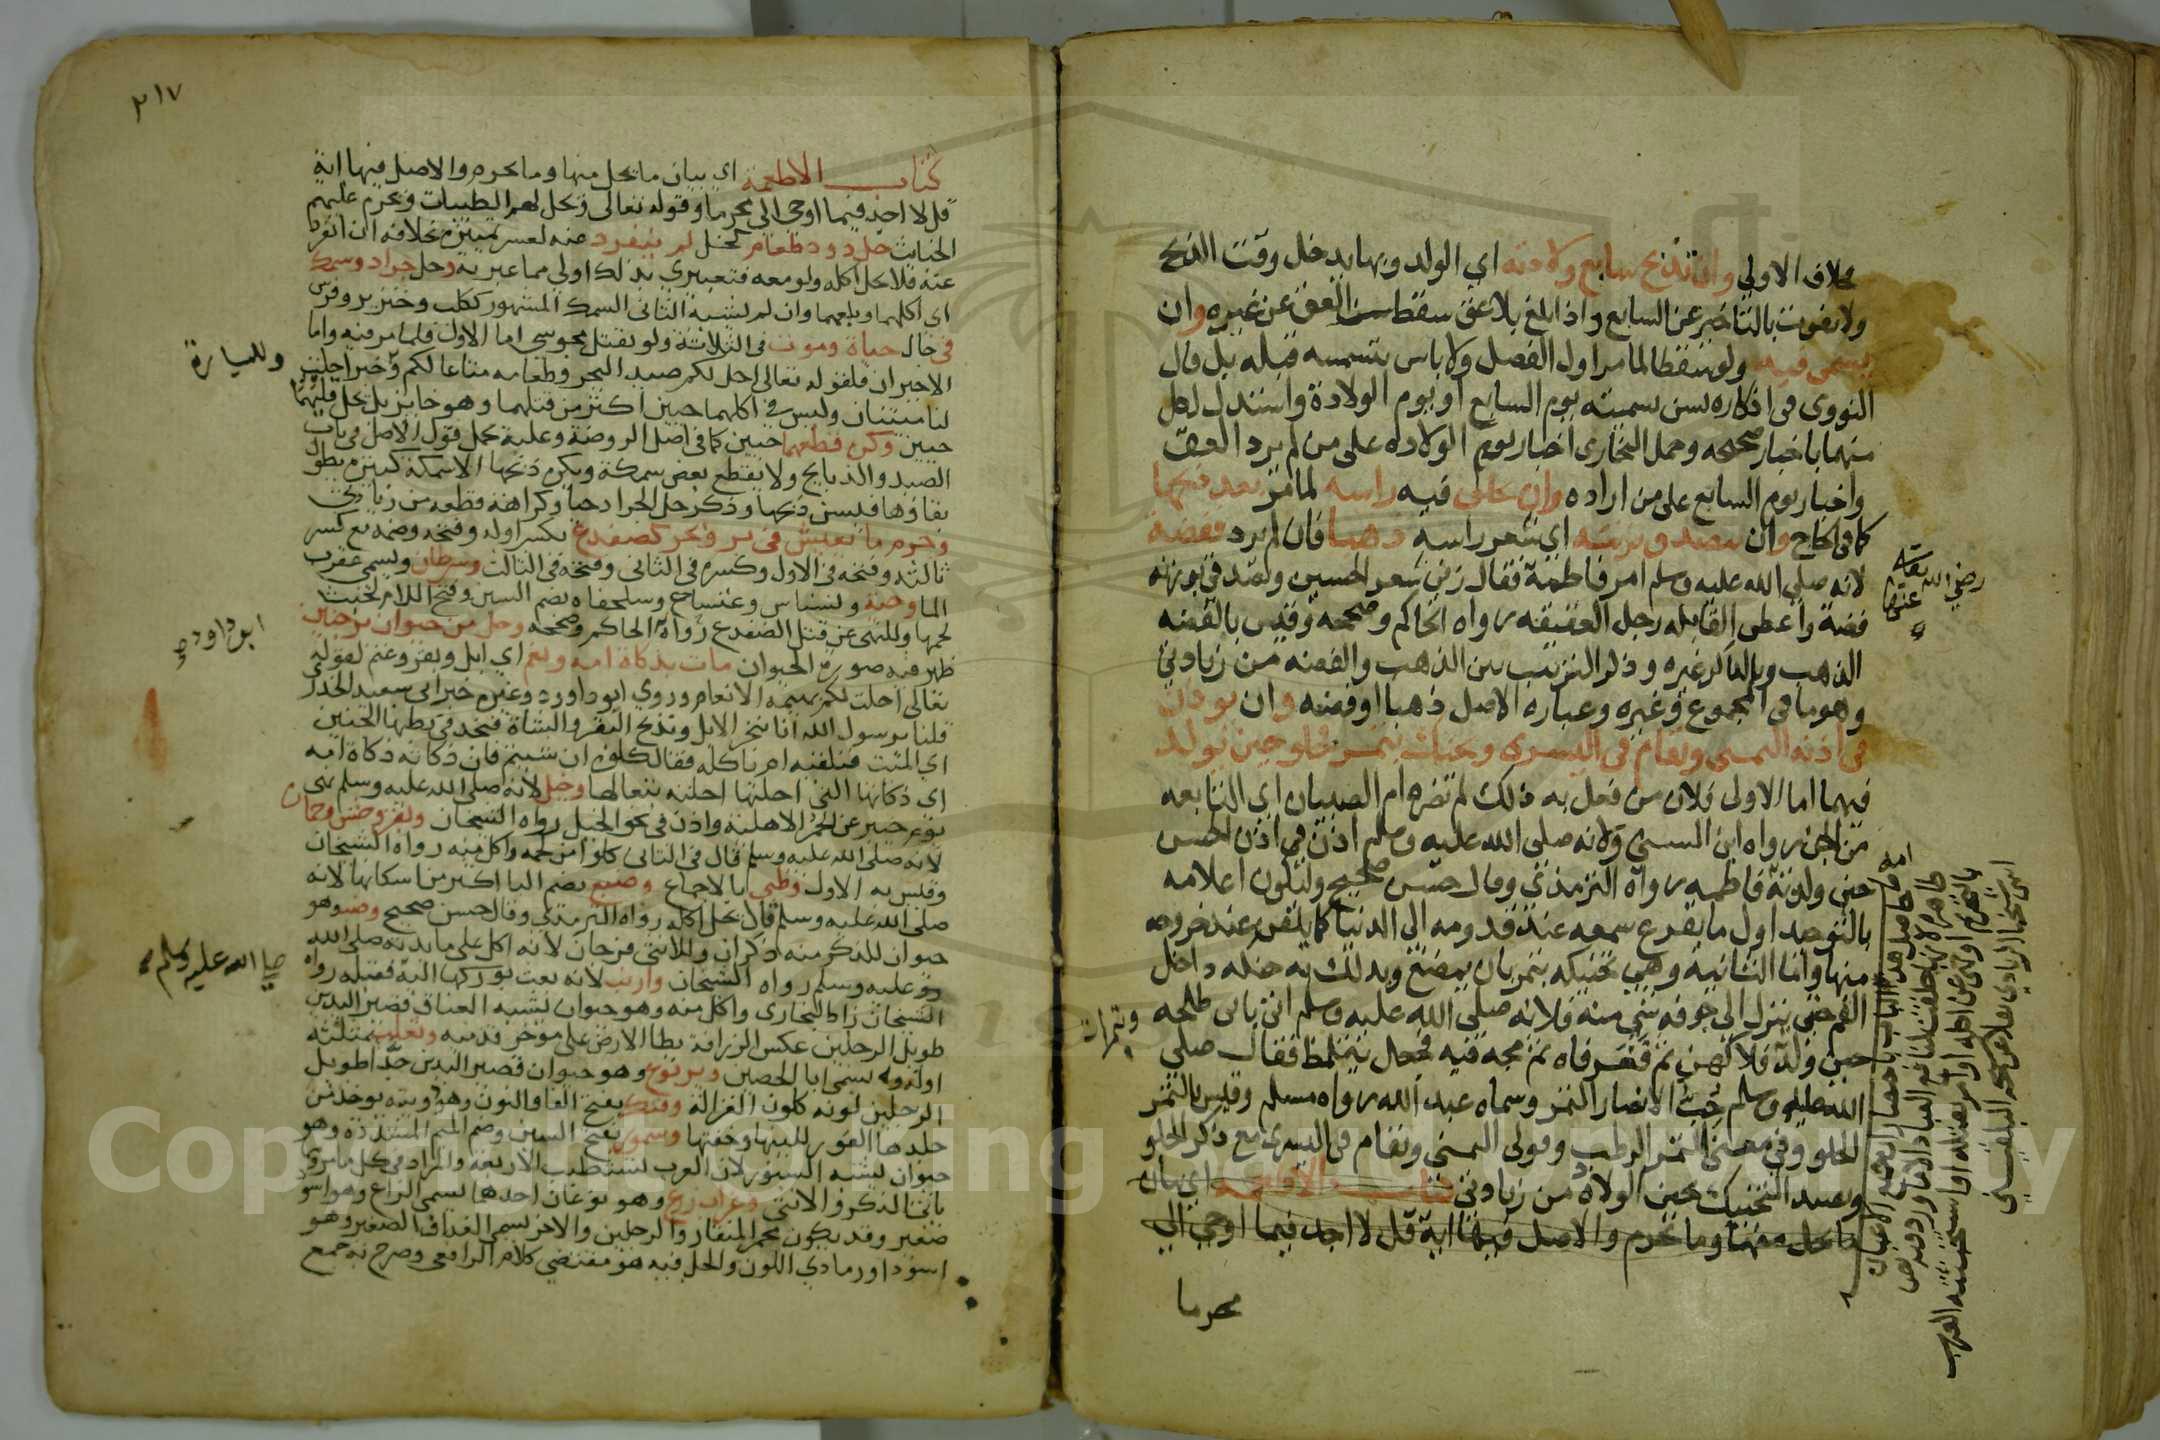 خلاف الاولى وان تذبح سابع ولادته اي الولد وبها يدخل وقت الذبح
ولا يفوت بالتاخير عن السابع واذا بلغ بلا عق سقط سن العق عن غيره وان
يسمى فيه ولو سقطا لما مر اول الفصل ولا باس بتسميته قبله بل قال
النووي في اذكاره يسن تسميته يوم السابع او يوم الولادة واستدل لكل
منهما باخبار صحيحه وحمل البخاري اخبار يوم الولاده على من لم يرد العق
واخبار يوم السابع على من اراده وان يحلق فيه راسه لما مر بعد ذبحها
كما في الحاج وان يتصدق بزنته اي شعر راسه ذهبا فان لم يرد ففضة
لانه صلى الله عليه وسلم امر فاطمة فقال زني شعر الحسين وتصدقي بوزنه
فضة واعطي القابله رجل العقيقه رواه الحاكم وصححه وقيس بالفضه
الذهب وبالذكر غيره وذكر الترتيب بين الذهب والفضه من زيادتي
وهو ما في المجموع وغيره وعباره الاصل ذهبا او فضه وان يوذن
في اذنه اليمنى ويقام في اليسرى ويحنك بتمر فحلو حين يولد
فيهما اما الاولى فلان من فعل به ذلك لم تضره ام الصبيان اي التابعه
من الجن رواه ابن السني ولانه صلى الله عليه وسلم اذن في اذن الحسن
حين ولدته فاطمه رواه الترمذي وقال حسن صحيح وليكون اعلامه
بالتوحيد اول ما يقرع سمعه عند قدومه الى الدنيا كما يلقن عند خروجه
منها واما الثانية وهي تحنيكه بتمر بان يمضغ ويدلك به حنكه داخل
الفم حتى ينزل الى جوفه شي منه فلانه صلى الله عليه وسلم اتى بابن طلحه
حين ولد فلاكهن ثم فغر فاه ثم مجه فيه فجعل يتلمظ فقال صلى
الله عليه وسلم حب الانصار التمر وسماه عبد الله رواه مسلم وقيس بالتمر
الحلو وفي معنى التمر الرطب وقولي اليمنى ويقام في اليسرى مع ذكر الحلو
وتقييد التحنيك بحين الولاده من زيادتي كتاب الاطعمه اي بيان
ما يحل منها وما يحرم والاصل فيها اية قل لا اجد فيما اوحي الي
محرما
رضي الله عنها
وبتمرات
٢١٧
كتاب الاطعمة اي بيان ما يحل منها وما يحرم والاصل فيها اية
قل لا اجد فيما اوحي الي محرما وقوله تعالى ويحل لهم الطيبات ويحرم عليهم
الخبائث حل دود طعام كخل لم ينفرد عنه لعسر تمييزه بخلافه ان انفرد
عنه فلا يحل اكله ولو معه فتعبيري بذلك اولى مما عبر به وحل جراد وسمك
اي اكلهما وبلعهما وان لم يشبه الثاني السمك المشهور ككلب وخنزير وفرس
في حال حياة وموت في الثلاثة ولو بقتل مجوسي اما الاول فلما مر فيه واما
الاخيران فلقوله تعالى احل لكم صيد البحر وطعامه متاعا لكم وخبر احلت
وللسيارة
لنا ميتتان وليس في اكلهما حيين اكثر من قتلهما وهو جايز بل يحل قليهما
حيين وكره قطعهما حيين كما في اصل الروضة وعليه يحمل قول الاصل في باب
الصيد والذبايح ولا يقطع بعض سمكة ويكره ذبحها الا سمكة كبيرة يطول
بقاوها فيسن ذبحها وذكر حل الجراد حيا وكراهة قطعه من زيادتي
وحرم ما يعيش في بر وبحر كضفدع بكسر اوله وفتحه وضمه مع كسر
ثالثه وفتحه في الاول وكسره في الثاني وفتحه في الثالث وسرطان ويسمى عقرب
الما وحية ونسناس وتمساح وسلحفاه بضم السين وفتح اللام لخبث
لحمها وللنهي عن قتل الضفدع رواه الحاكم وصححه وحل من حيوان بر جنين
ابو داود و
ظهر فيه صورة الحيوان مات بذكاة امه ونعم اي ابل وبقر وغنم لقوله
تعالى احلت لكم بهيمة الانعام وروى ابو داود وغيره خبر ابي سعيد الخدري
قلنا يرسول الله انا ننحر الابل ونذبح البقر والشاة فنجد في بطنها الجنين
اي الميت فنلقيه ام ناكله فقال كلوه ان شيتم فان ذكاته ذكاة امه
اي ذكاتها التي احلتها احلته تبعا لها وخيل لانه صلى الله عليه وسلم نهى
يوم خيبر عن الحمر الاهلية واذن في نحو الخيل رواه الشيخان وبقر وحش وحمار
لانه صلى الله عليه وسلم قال في الثاني كلوا من لحمه واكل منه رواه الشيخان
وقيس به الاول وظبي بالاجماع وضبع بضم البا اكثر من اسكانها لانه
صلى الله عليه وسلم قال يحل اكله رواه الترمذي وقال حسن صحيح وضب وهو
حيوان للذكر منه ذكران وللانثى فرجان لانه اكل على مايدته صلى الله
صلى الله عليه وسلم
عليه وسلم رواه الشيخان وارنب لانه بعث بوركها اليه فقبله رواه
الشيخان زاد البخاري واكل منه وهو حيوان يشبه العناق قصير اليدين
طويل الرجلين عكس الزرافة يطا الارض على موخر قدميه وثعلب بمثلثة
اوله ويسمى ابا الحصين ويربوع وهو حيوان قصير اليدين جدا طويل
الرجلين لونه كلون الغزالة وفنك بفتح الفا والنون وهو دويبة يوخذ من
جلدها الفرو للينها وخفتها وسمور بفتح السين وضم الميم المشددة وهو
حيوان يشبه السنور لان العرب تستطيب الاربعة والمراد في كل ما مر
الذكر والانثى وغراب زرع وهو نوعان احدها يسمى الزاغ وهو اسود
صغير وقد يكون محمر المنقار والرجلين والاخر يسمى الغداف الصغير وهو
اسود او رمادي اللون والحل فيه هو مقتضى كلام الرافعي وصرح به جمع